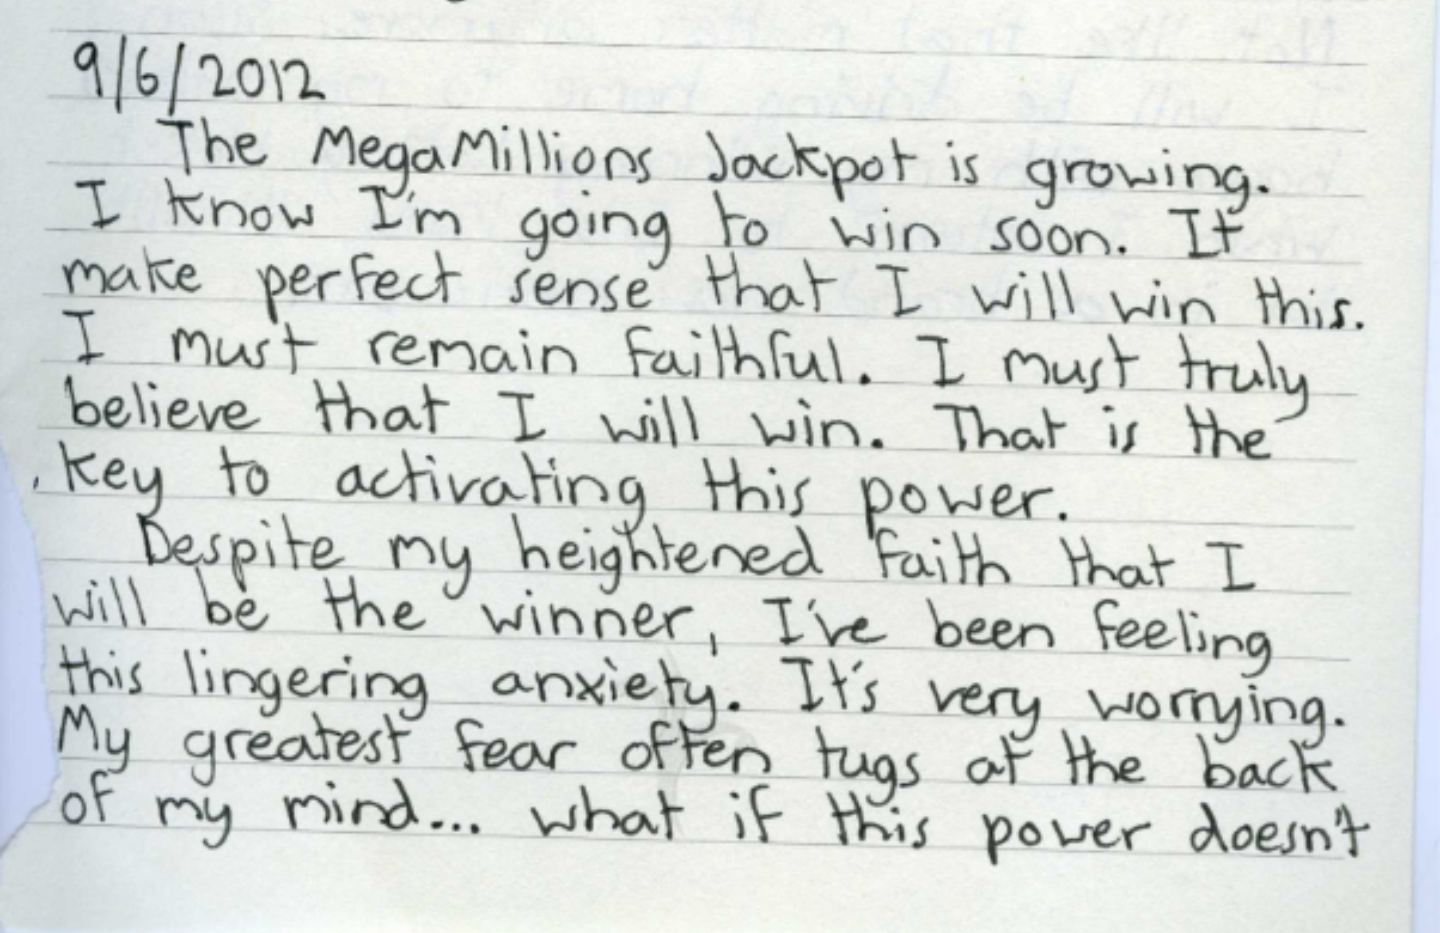 9/6/2012
The MegaMillions Jackpot is growing.
I know I'm going to win soon. It
make perfect sense that I will win this.
I must remain faithful. I must truly
believe that I will win. That is the
key to activating this power.
Despite my heightened faith that I
will be the winner, I've been feeling
this lingering anxiety. It's very worrying.
My greatest fear often tugs at the back
of my mind... what if this power doesn't